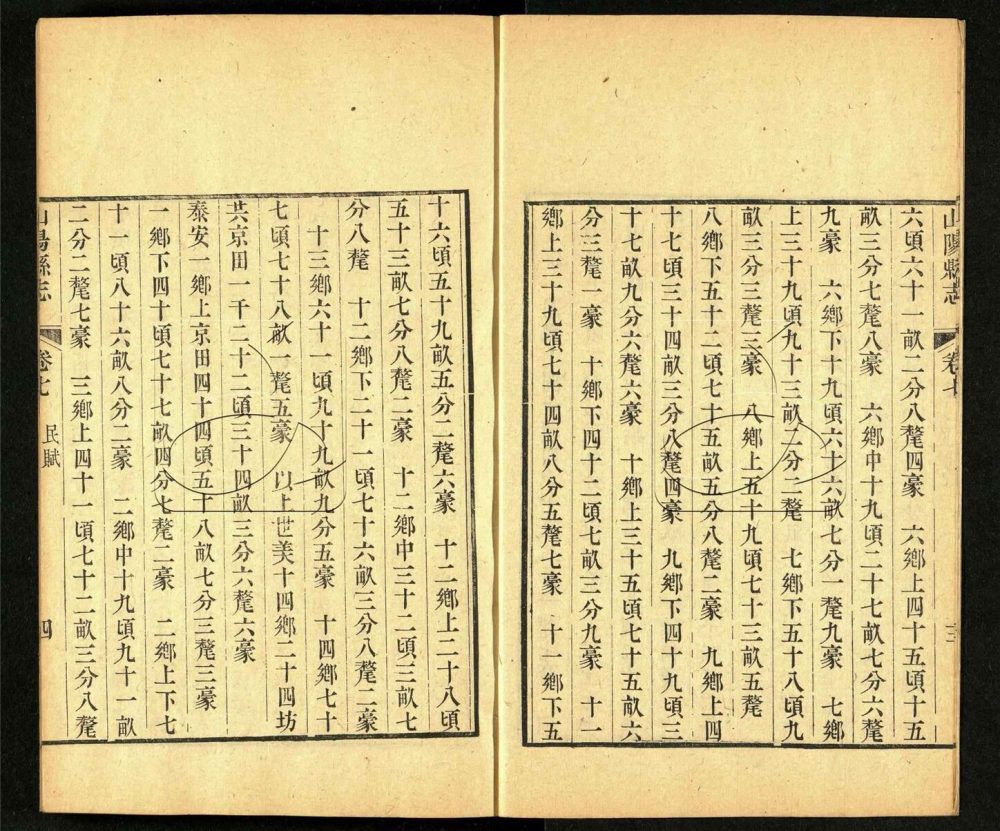 山陽縣志 卷七 三
六頃六十一畝二分八釐四豪 六鄉上四十五頃十五
畝三分七釐八豪 六鄉中十九頃二十七畝七分六釐
九豪 六鄉下十九頃六十六畝七分一釐九豪 七鄉
上三十九頃九十三畝二分二釐 七鄉下五十八頃九
畝三分三釐三豪 八鄉上五十九頃七十三畝五釐
八鄉下五十二頃七十五畝五分八釐二豪 九鄉上四
十七頃三十四畝三分八釐四豪 九鄉下四十九頃三
十七畝九分六釐六豪 十鄉上三十五頃七十五畝六
分三釐一豪 十鄉下四十二頃七畝三分九豪 十一
鄉上三十九頃七十四畝八分五釐七豪 十一鄉下五
十六頃五十九畝五分二釐六豪 十二鄉上二十八頃
五十三畝七分八釐二豪 十二鄉中三十二頃三畝七
分八釐 十二鄉下二十一頃七十六畝三分八釐二豪
十三鄉六十一頃九十九畝九分五豪 十四鄉七十
七頃七十八畝一釐五豪 以上世美十四鄉二十四坊
共京田一千二十二頃三十四畝三分六釐六豪
泰安一鄉上京田四十四頃五十八畝七分三釐三豪
一鄉下四十頃七十七畝四分七釐二豪 二鄉上下七
十一頃八十六畝八分二豪 二鄉中十九頃九十一畝
二分二釐七豪 三鄉上四十一頃七十二畝三分八釐
山陽縣志 卷七 民賦 四